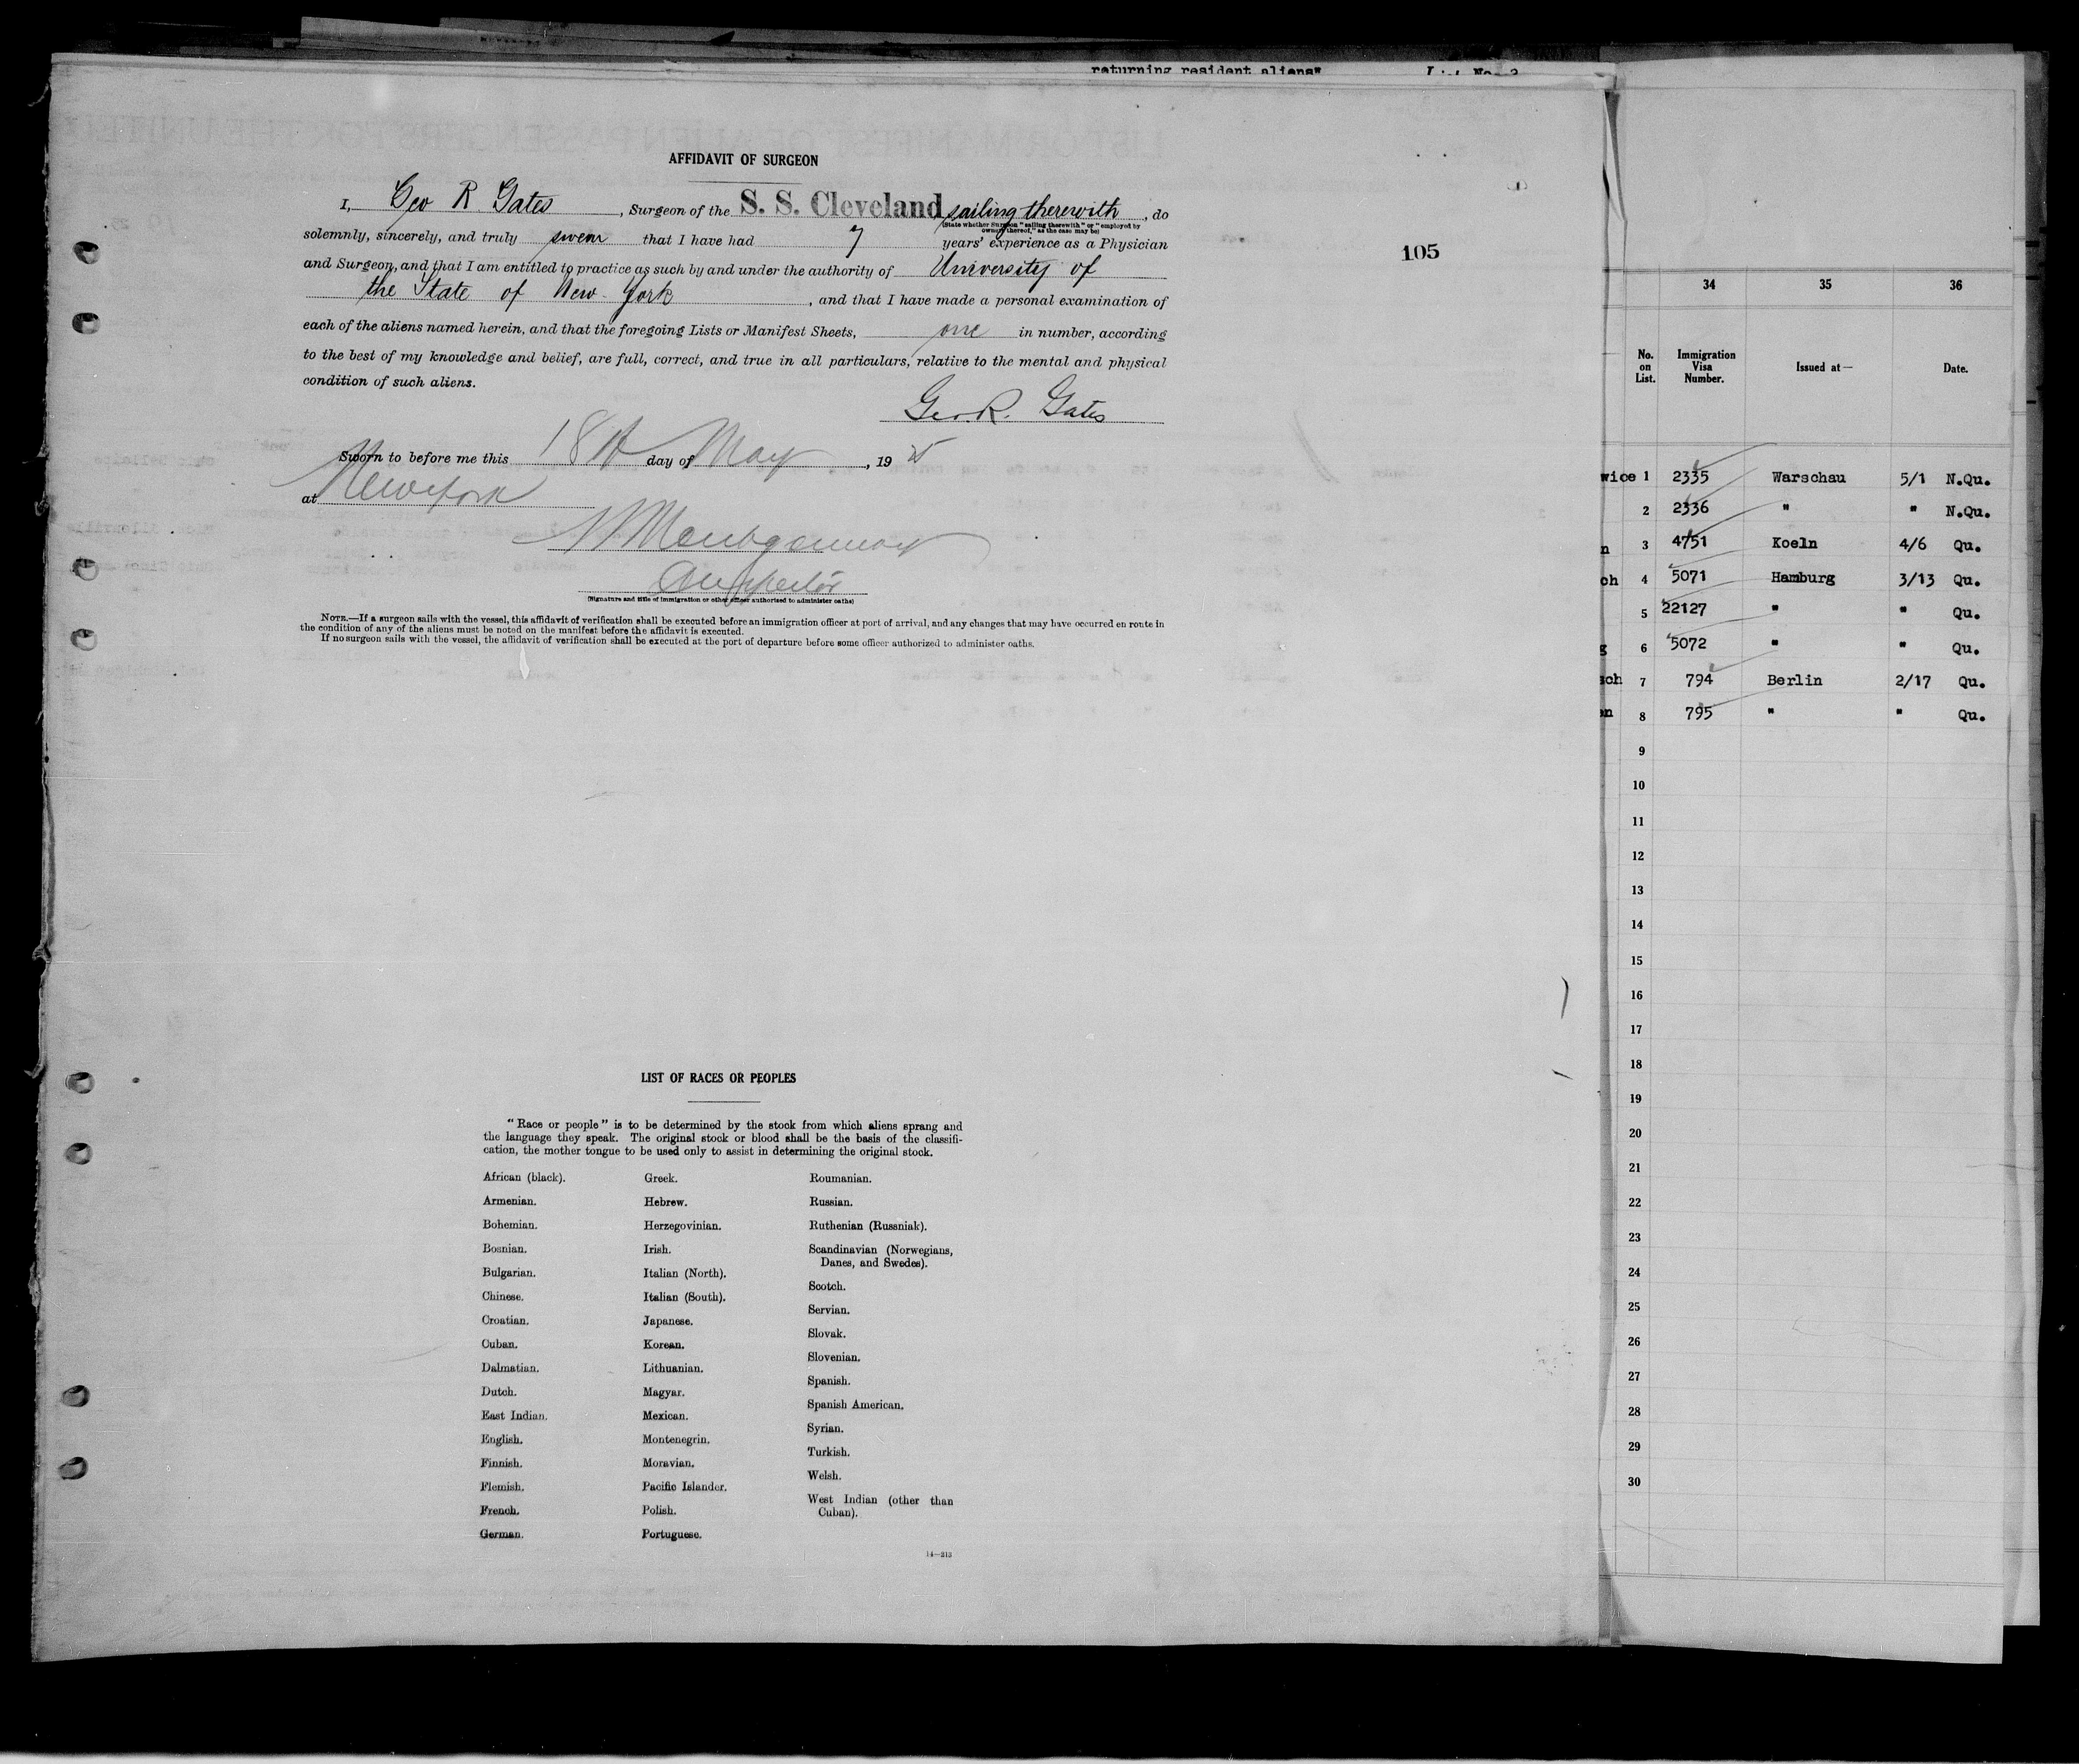 returning resident aliens"
AFFIDAVIT OF SURGEON
I, Geo R. Gates, Surgeon of the S. S. Cleveland sailing therewith, do
(State whether Surgeon "sailing therewith" or "employed by
owners thereof," as the case may be)
solemnly, sincerely, and truly swear that I have had 7 years' experience as a Physician
105
and Surgeon, and that I am entitled to practice as such by and under the authority of University of
the State of New York, and that I have made a personal examination of
each of the aliens named herein, and that the foregoing Lists or Manifest Sheets, one in number, according
to the best of my knowledge and belief, are full, correct, and true in all particulars, relative to the mental and physical
condition of such aliens.
Geo. R. Gates
Sworn to before me this 18th day of May, 19 25
at New York
Montgomery
Inspector
(Signature and title of immigration or other officer authorized to administer oaths)
NOTE.—If a surgeon sails with the vessel, this affidavit of verification shall be executed before an immigration officer at port of arrival, and any changes that may have occurred en route in
the condition of any of the aliens must be noted on the manifest before the affidavit is executed.
If no surgeon sails with the vessel, the affidavit of verification shall be executed at the port of departure before some officer authorized to administer oaths.
LIST OF RACES OR PEOPLES
"Race or people" is to be determined by the stock from which aliens sprang and
the language they speak. The original stock or blood shall be the basis of the classifi-
cation, the mother tongue to be used only to assist in determining the original stock.
African (black).
Armenian.
Bohemian.
Bosnian.
Bulgarian.
Chinese.
Croatian.
Cuban.
Dalmatian.
Dutch.
East Indian.
English.
Finnish.
Flemish.
French.
German.
Greek.
Hebrew.
Herzegovinian.
Irish.
Italian (North).
Italian (South).
Japanese.
Korean.
Lithuanian.
Magyar.
Mexican.
Montenegrin.
Moravian.
Pacific Islander.
Polish.
Portuguese.
Roumanian.
Russian.
Ruthenian (Russniak).
Scandinavian (Norwegians,
Danes, and Swedes).
Scotch.
Servian.
Slovak.
Slovenian.
Spanish.
Spanish American.
Syrian.
Turkish.
Welsh.
West Indian (other than
Cuban).
14—212
34 35 36
No. on List. Immigration Visa Number. Issued at— Date.
wice 1 2335 Warschau 5/1 N.Qu.
2 2336 " " N.Qu.
n 3 4751 Koeln 4/6 Qu.
ch 4 5071 Hamburg 3/13 Qu.
5 22127 " " Qu.
g 6 5072 " " Qu.
sch 7 794 Berlin 2/17 Qu.
en 8 795 " " Qu.
9
10
11
12
13
14
15
16
17
18
19
20
21
22
23
24
25
26
27
28
29
30